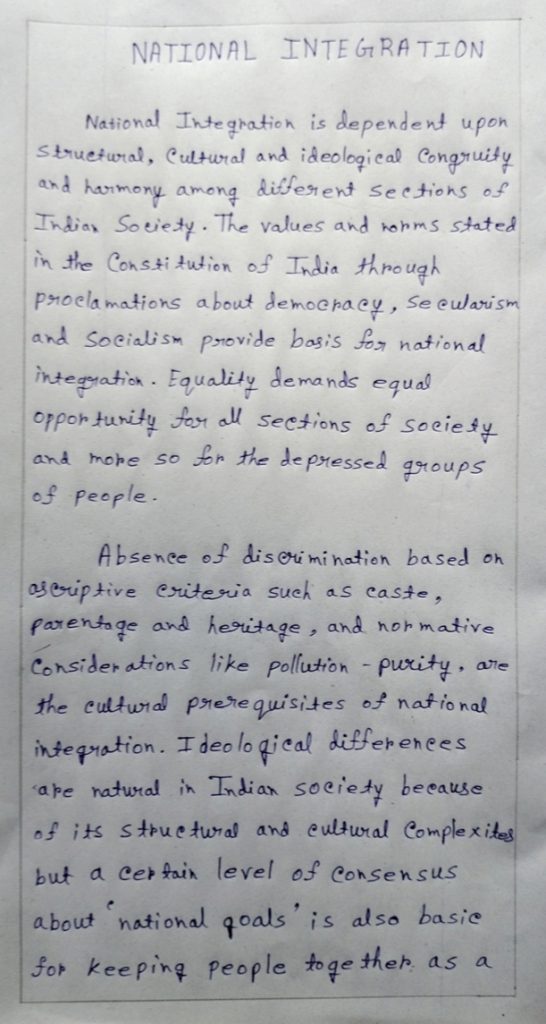 NATIONAL INTEGRATION
National Integration is dependent upon
structural, Cultural and ideological Congruity
and harmony among different sections of
Indian Society. The values and norms stated
in the Constitution of India through
proclamations about democracy, Secularism
and Socialism provide basis for national
integration. Equality demands equal
opportunity for all sections of society
and more so for the depressed groups
of people.
Absence of discrimination based on
ascriptive criteria such as caste,
parentage and heritage, and normative
Considerations like pollution - purity, are
the cultural prerequisites of national
integration. Ideological differences
are natural in Indian society because
of its structural and cultural Complexites
but a certain level of consensus
about 'national goals' is also basic
for keeping people together as a